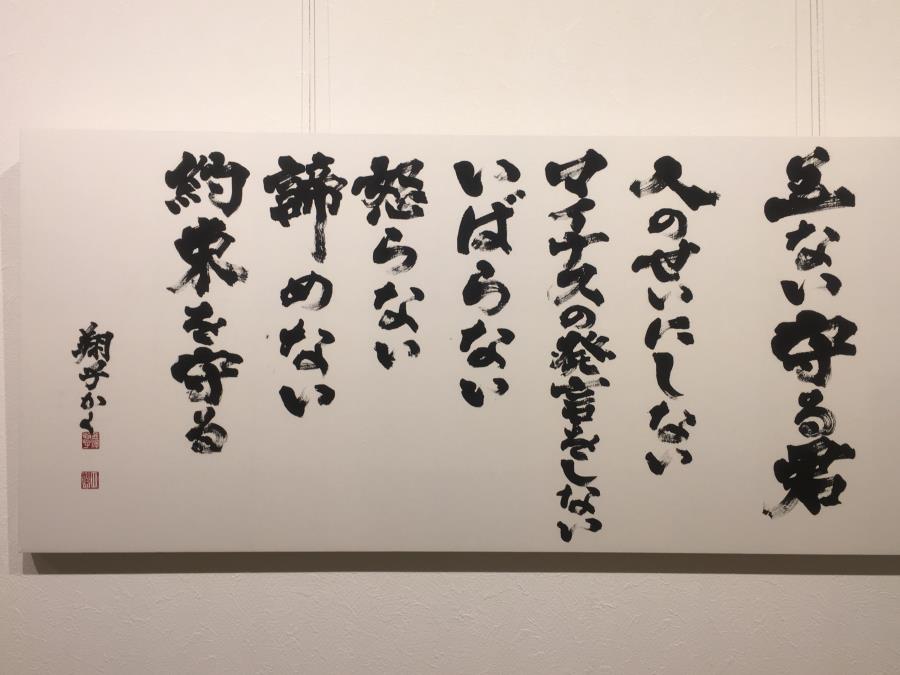 五ない守る君
人のせいにしない
マイナスの発言をしない
いばらない
怒らない
諦めない
約束を守る
翔子かく